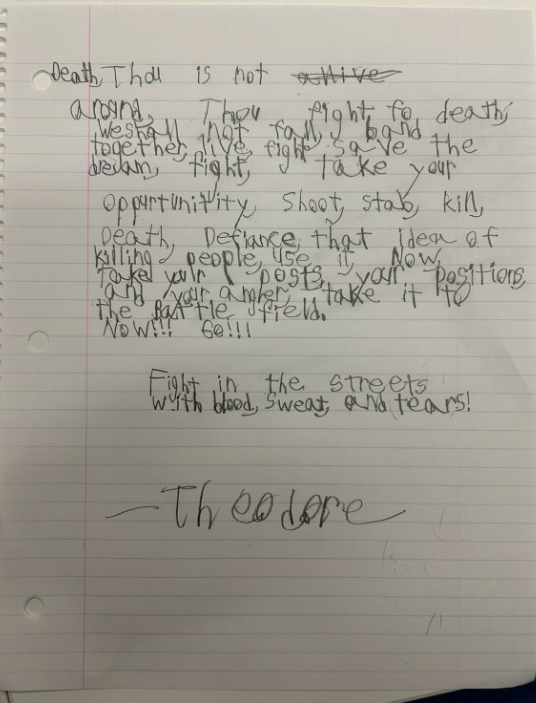 Death, Thou is not allive
around, Thou fight to death,
we shall not fall, band
together, live, fight, save the
dream, fight, take your
oppurtunitity, shoot, stab, kill,
Death, Defiance, that idea of
killing people, use it. Now,
take your posts, your positions,
and your anger, take it to
the battle field.
NOW!!! GO!!!
Fight in the streets
with blood, sweat, and tears!
—Theodore